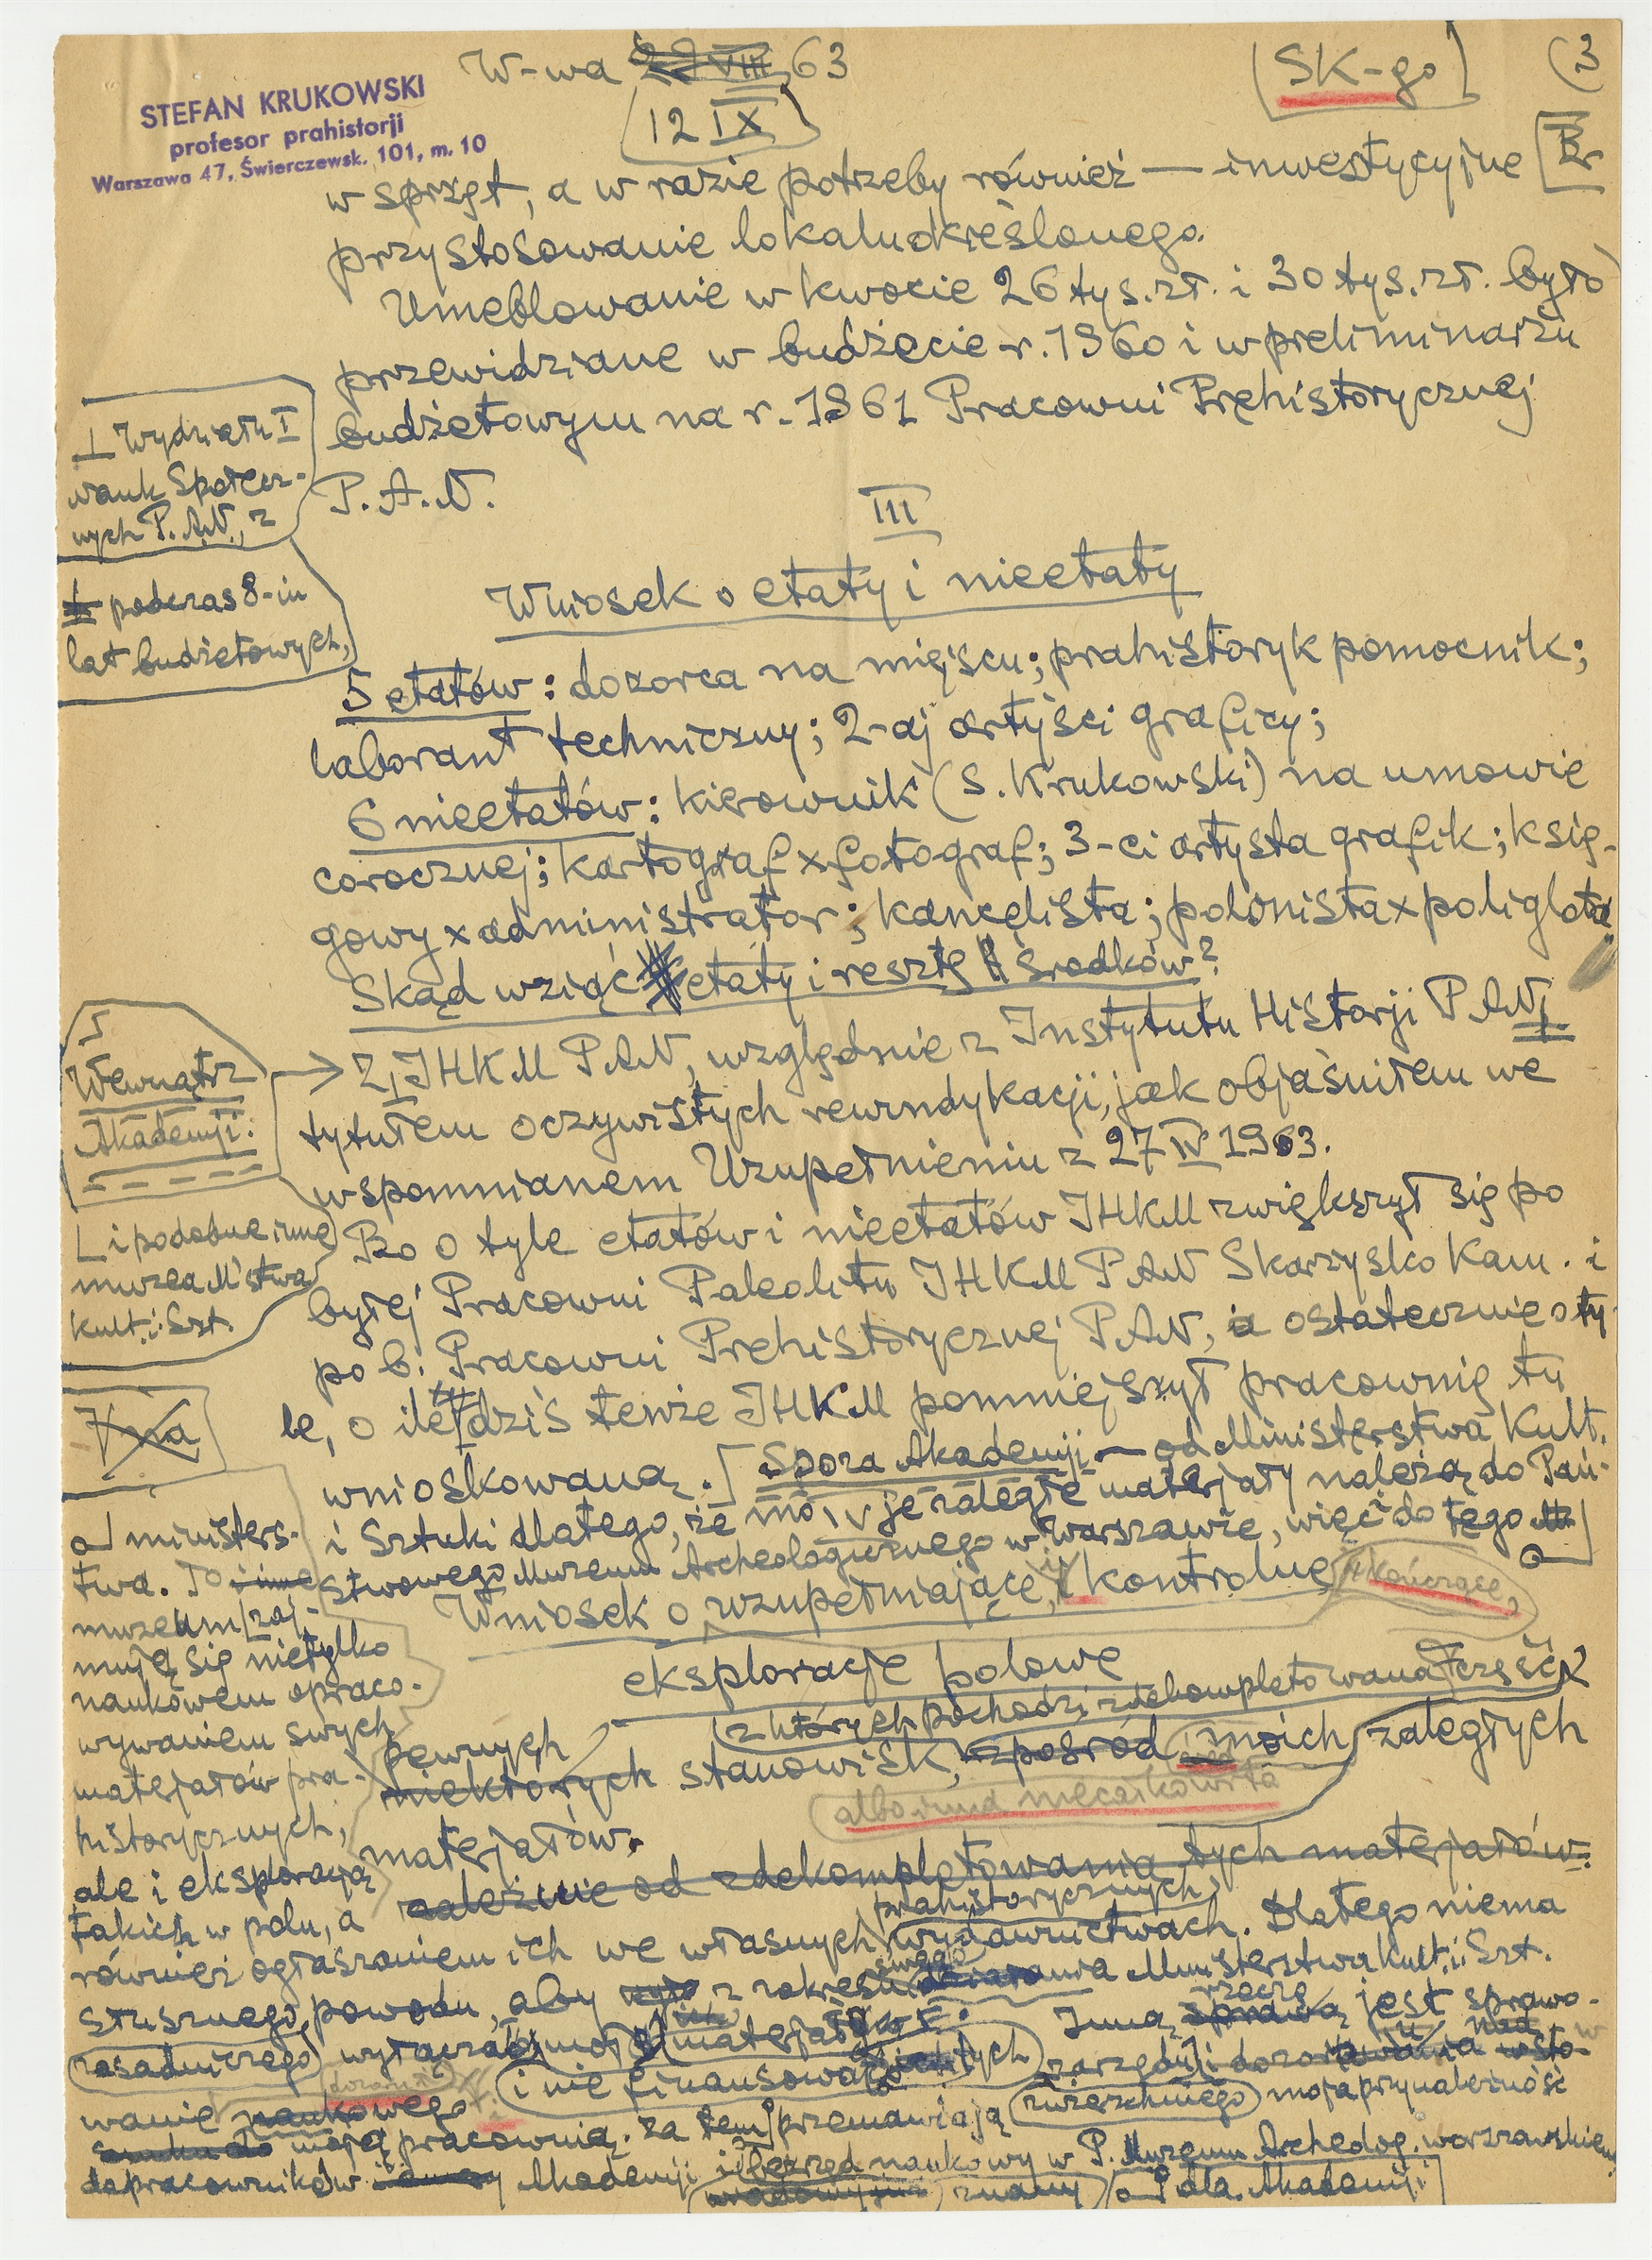 W-wa 22 VIII 63
SK-go
(3
STEFAN KRUKOWSKI
profesor prahistorji
Warszawa 47, Świerczewsk. 101, m. 10
12 IX
w sprzęt, a w razie potrzeby również — inwestycyjne
przystosowanie lokalu określonego.
Umeblowanie w kwocie 26 tys. zł. i 30 tys. zł. było
przewidziane w budżecie r. 1960 i w preliminarzu
budżetowym na r. 1961 Pracowni Prehistorycznej
P.A.N.
⊥ Wydziału I
nauk Społecz-
nych P.A.N., z
podczas 8-iu
lat budżetowych,
III
Wniosek o etaty i nieetaty
5 etatów: dozorca na miejscu; prahistoryk pomocnik;
laborant techniczny; 2-aj artyści graficy;
6 nieetatów: kierownik (S. Krukowski) na umowie
corocznej; kartograf x fotograf; 3-ci artysta grafik; księ-
gowy x administrator; kancelista; polonista x poliglota.
Skąd wziąć etaty i resztę środków?
Wewnątrz
Akademji:
Z IHKM PAN, względnie z Instytutu Historji PAN
tytułem oczywistych rewindykacji, jak objaśniłem we
wspomnianem Uzupełnieniu z 27 IV 1963.
Bo o tyle etatów i nieetatów IHKM zwiększył się po
byłej Pracowni Paleolitu IHKM PAN Skarżysko Kam. i
po b. Pracowni Prehistorycznej PAN, a ostatecznie o ty-
le, o ile dziś tenże IHKM pomniejszył pracownię tu
wnioskowaną. Spoza Akademji — od Ministerstwa Kult.
i Sztuki dlatego, że moje zaległe materjały należą do Pań-
stwowego Muzeum Archeologicznego w Warszawie, więc i do tego
└ i podobne inne
muzea M'stwa
Kult. i Szt.
na
ministers-
twa. To inne
muzeum zaj-
muje się nietylko
naukowem opraco-
wywaniem swych
materjałów pra-
historycznych,
ale i eksploracją
takich w polu, a
Wniosek o uzupełniające, i kontrolne kończące,
eksploracje polowe
z których pochodzi zdekompletowana część
pewnych
niektórych stanowisk, spośród moich zaległych
materjałów.
zależnie od zdekompletowania tych materjałów.
prahistorycznych
również ogłaszaniem ich we własnych wydawnictwach. Dlatego niema
słusznego powodu, aby z zakresu działania Ministerstwa Kult. i Szt.
swego
zasadniczego
i nie finansować tych
Inną sprawą jest sprawo-
rzeczą
wanie naukowego
zwierzchniego moja przynależność
moją pracownią. Za tem przemawiają
do pracowników Akademji i urząd naukowy w P. Muzeum Archeolog. warszawskiem
znany
dla Akademji